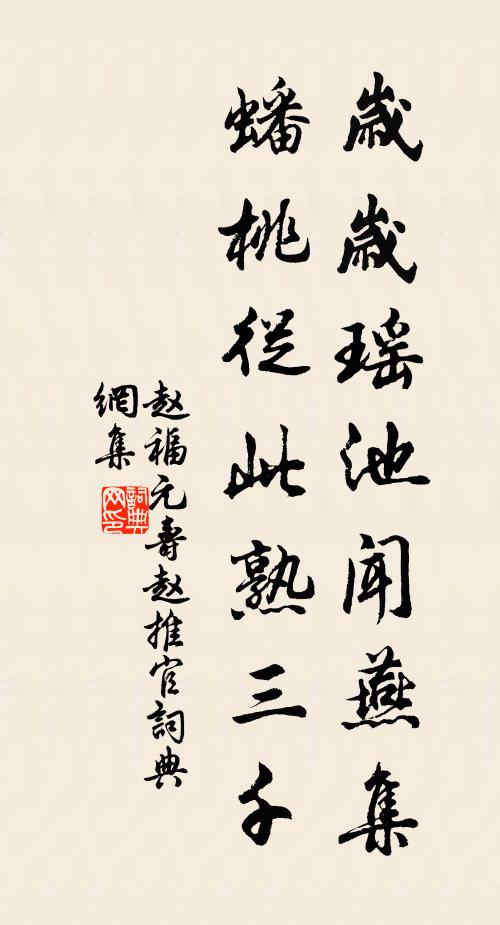 歲歲瑶池聞燕集
蟠桃從此熟三千
赵福元壽赵推官詞典
網集
詞典
网印